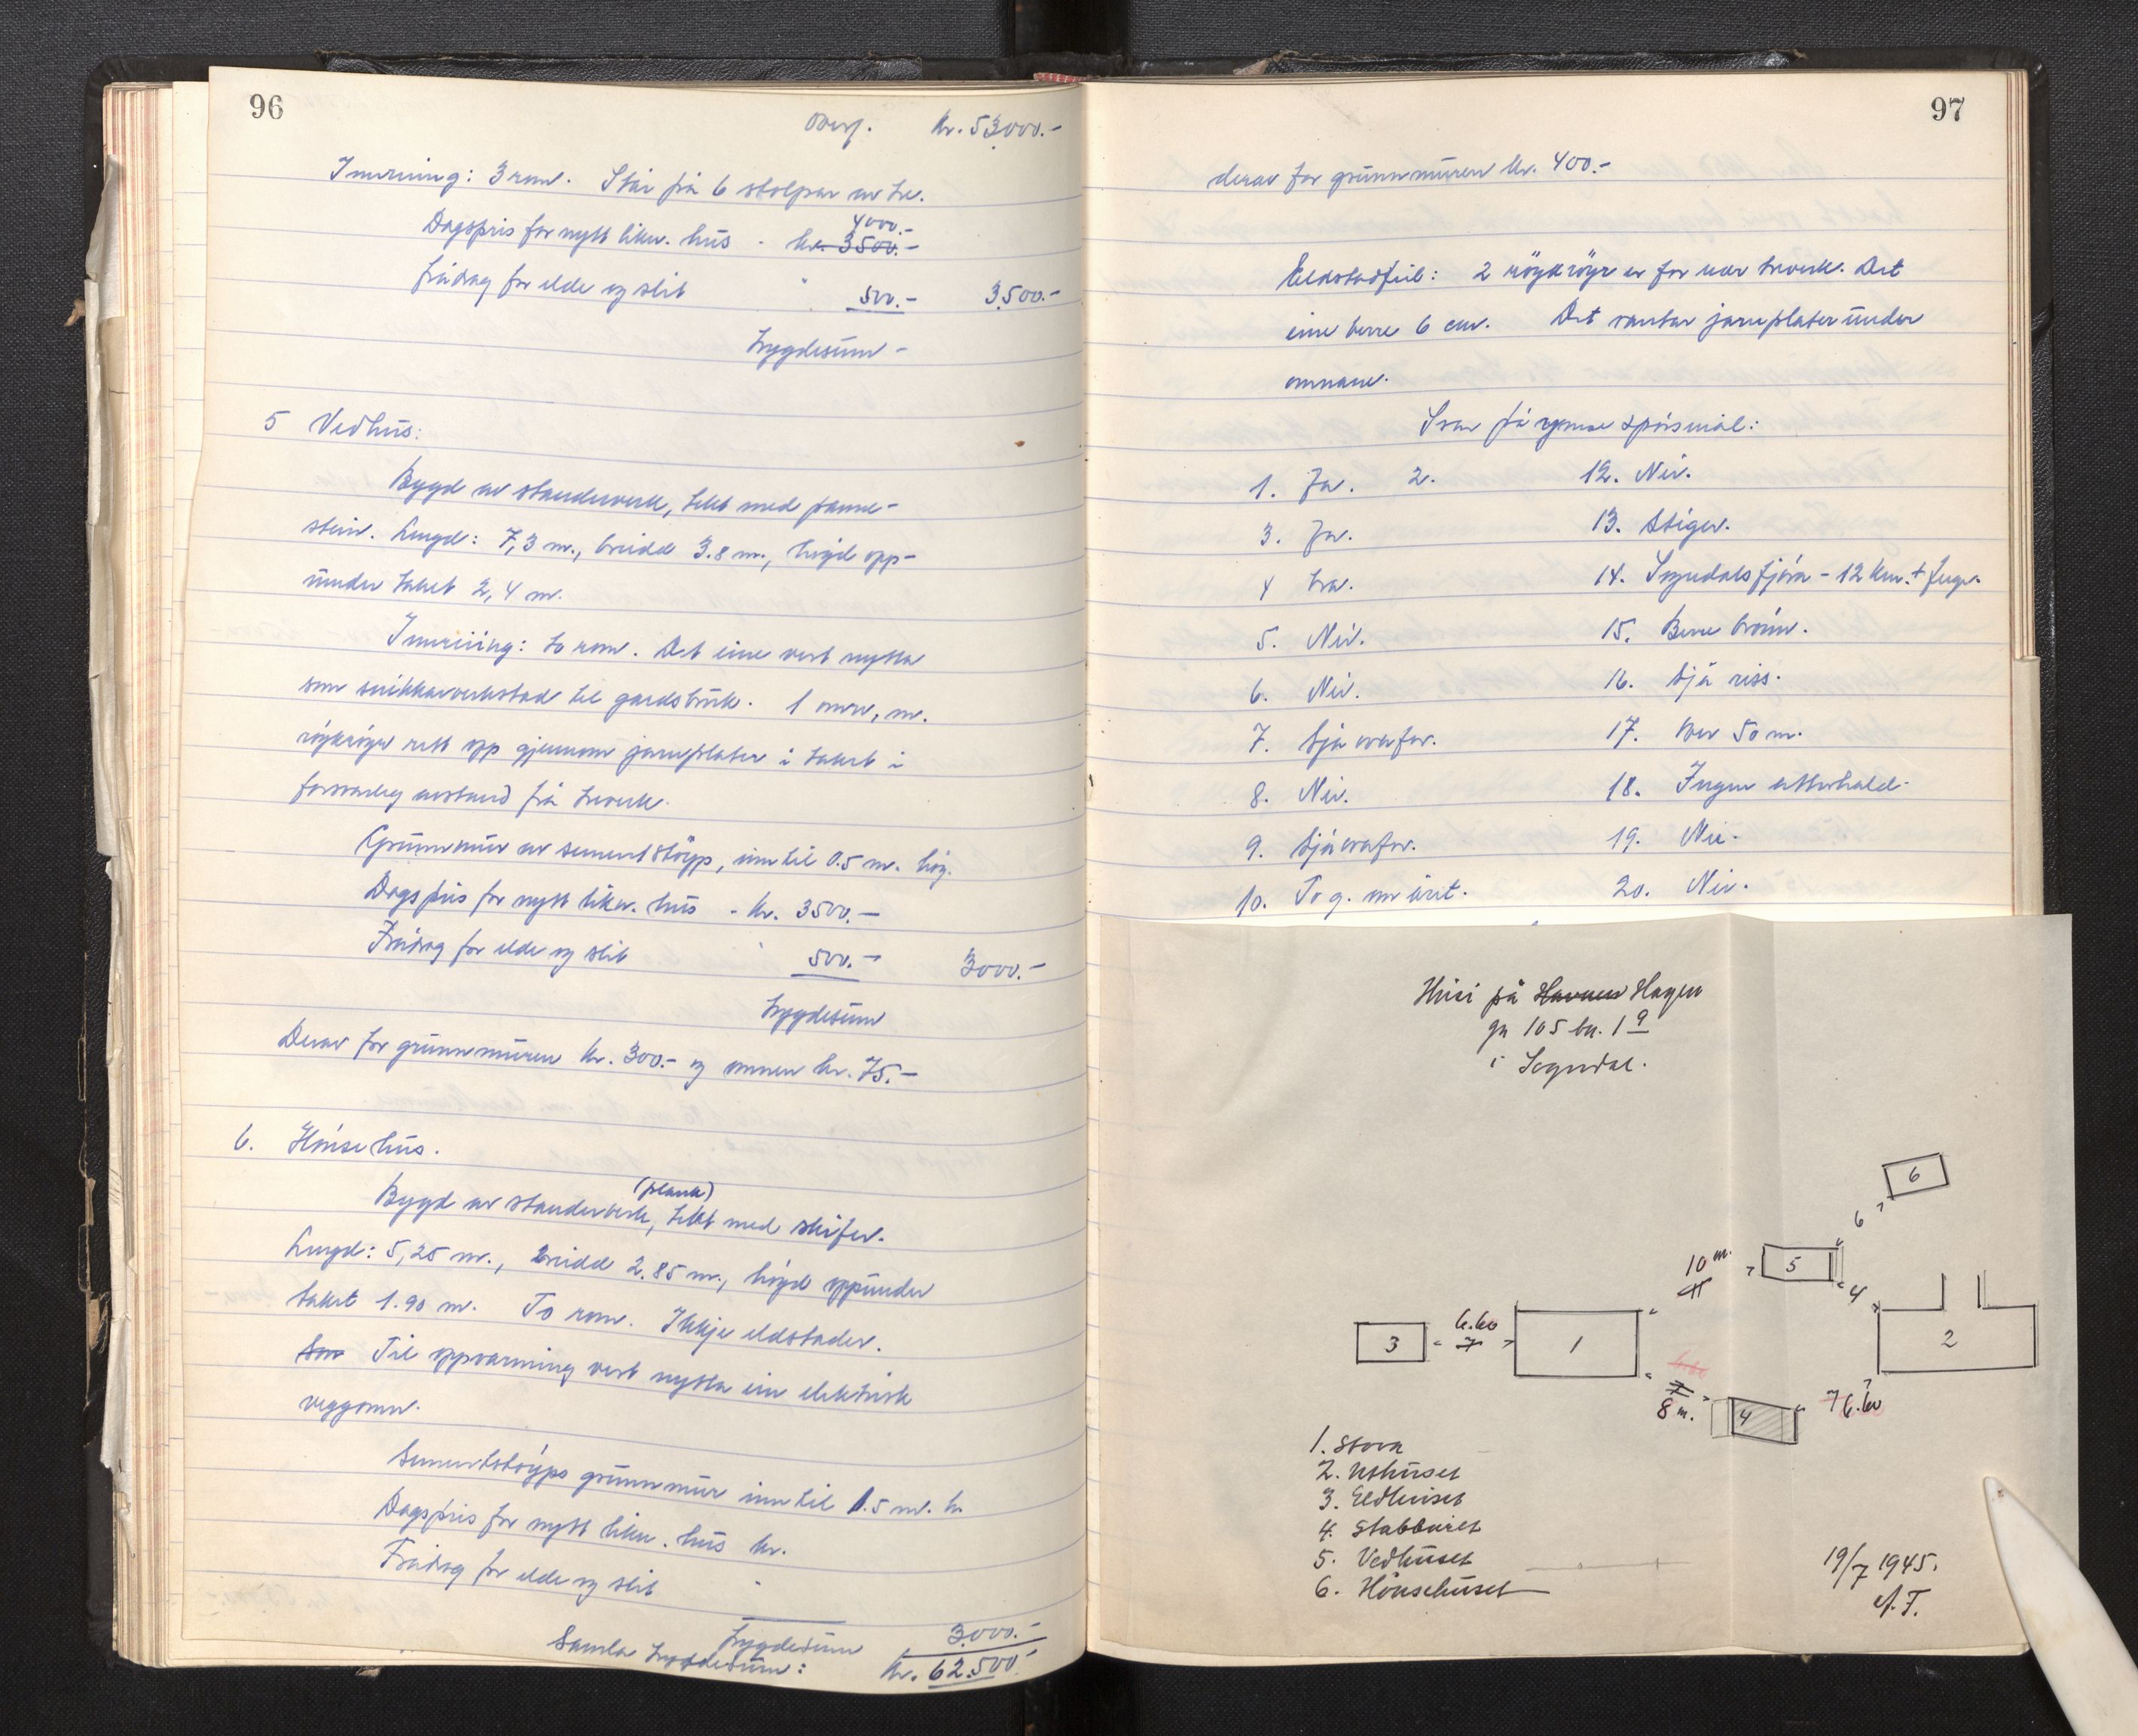 96
Overf. kr. 53,000.-
Innreiing: 3 rom. Står på 6 stolpar av tre.
4000.-
Dagspris for nytt likn. hus - kr. 3500.-
frådrag for elde og slit " 500.- 3.500.-
trygdesum -
5 Vedhus:
Bygd av standerverk, tekt med panne-
stein. Lengd: 7,3 m., breidd 3.8 m., høgd opp-
under taket 2,4 m.
Innreiing: to rom. Det eine vert nytta
som snikkarverkstad til gardsbruk. 1 omn, m.
røykrøyr rett opp gjennom jarnplater i taket i
forsvarleg avstand frå treverk.
Grunnmur av sementstøyp, inntil 0.5 m. høg.
Dagspris for nytt likn. hus - kr. 3500.-
Frådrag for elde og slit " 500.- 3000.-
trygdesum
Derav for grunnmuren kr. 300.- og omnen kr. 75.-
6. Hønsehus.
(plank)
Bygd av standerverk, tekt med skifer.
Lengd: 5,25 m., breidd 2.85 m., høgd oppunder
taket 1.90 m. To rom. Ikkje eldstader.
Som Til oppvarming vert nytta ein elektrisk
veggomn.
Sementstøyps grunnmur inntil 1.5 m. h
Dagspris for nytt likn. hus kr.
Frådrag for elde og slit "
trygdesum 3.000.-
Samla trygdesum: kr. 62.500.-
97
derav for grunnmuren kr. 400.-
Eldstadfeil: 2 røykrøyr er for nær treverk. Det
eine berre 6 cm. Det vantar jarnplater under
omnane.
Svar på ymse spørsmål:
1. Ja. 2.
3. Ja.
4 bra.
5. Nei.
6. Nei.
7. Sjå ovafor.
8. Nei.
9. Sjå ovafor.
10. To g. um året.
12. Nei.
13. Stiger.
14. Sogndalsfjøra - 12 km. + Ingen.
15. Berre brønn.
16. Sjå riss.
17. Over 50 m.
18. Ingen atterhald.
19. Nei.
20. Nei.
Husi på Havnen Hagen
gn 105 bn. 1 9
i Sogndal.
6
6
5
10 m.
4
2
3
6.60
7
1
7
8 m.
4
7 6.60
1. Stova
2. Uthuset
3. Eldhuset
4. Stabburet
5. Vedhuset
6. Hønsehuset
19/7 1945.
A.T.